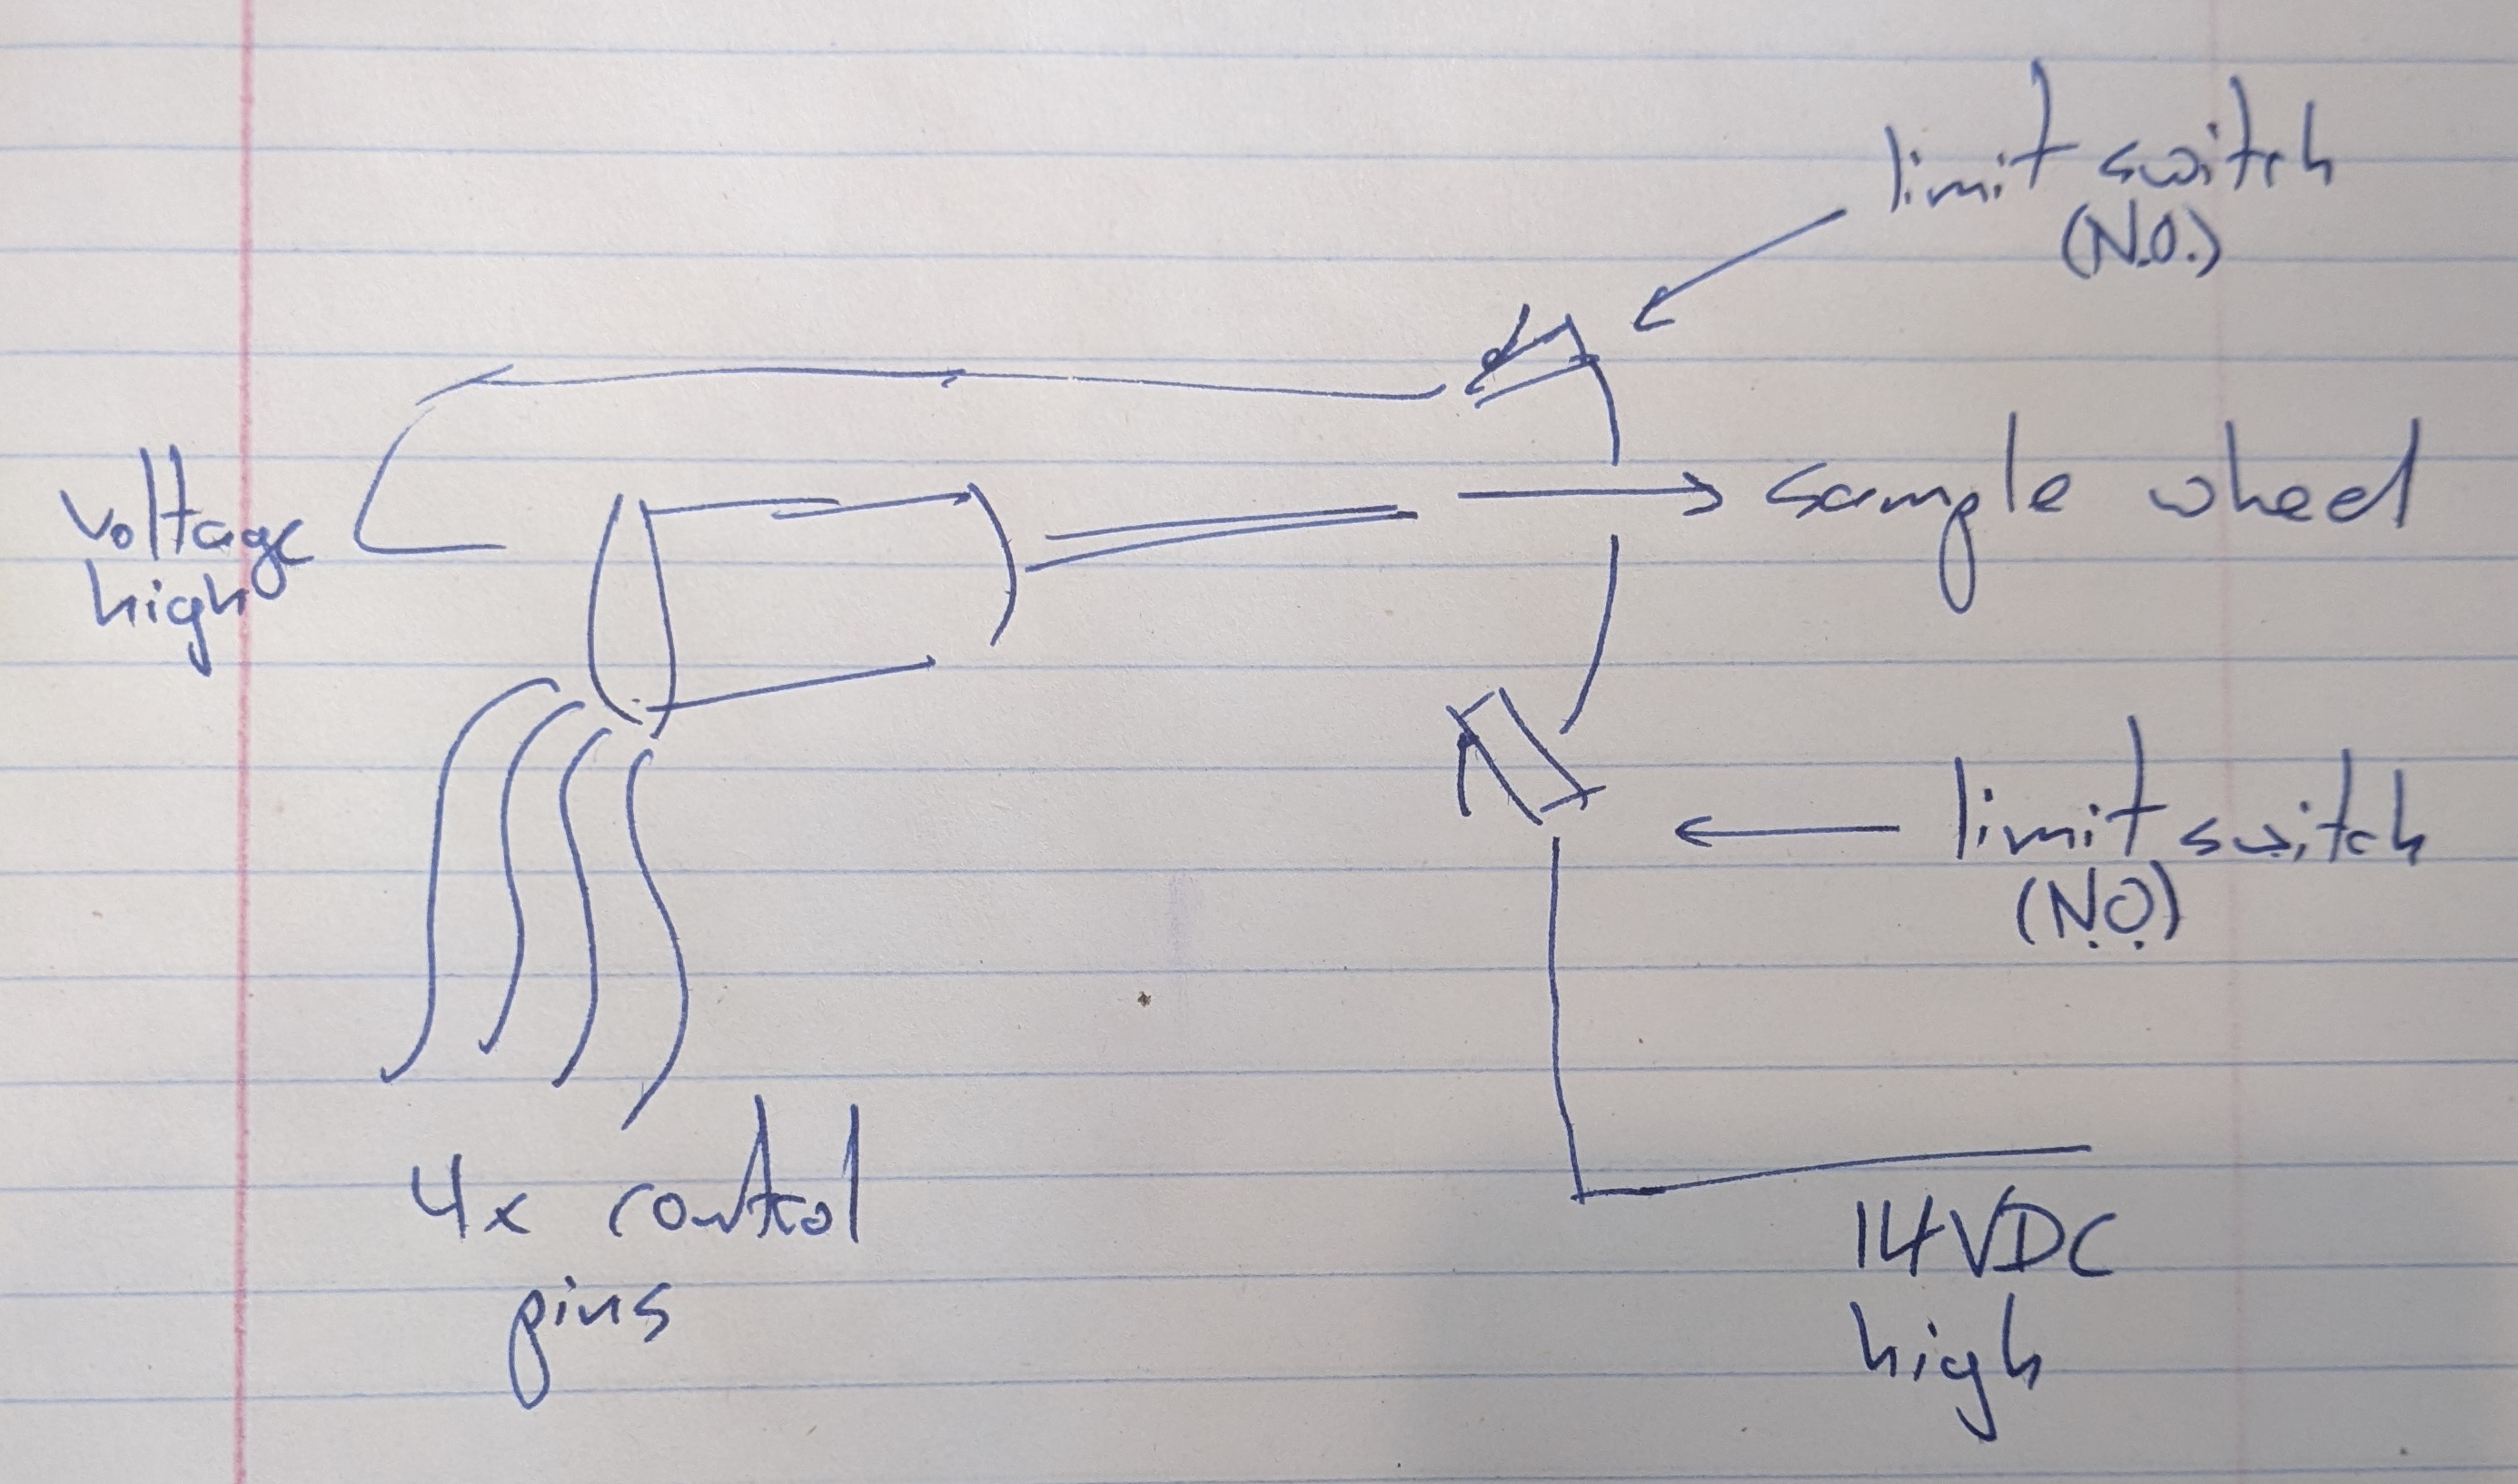 limit switch
(N.O.)
voltage
high
sample wheel
limit switch
(N.O.)
4x control
pins
14VDC
high